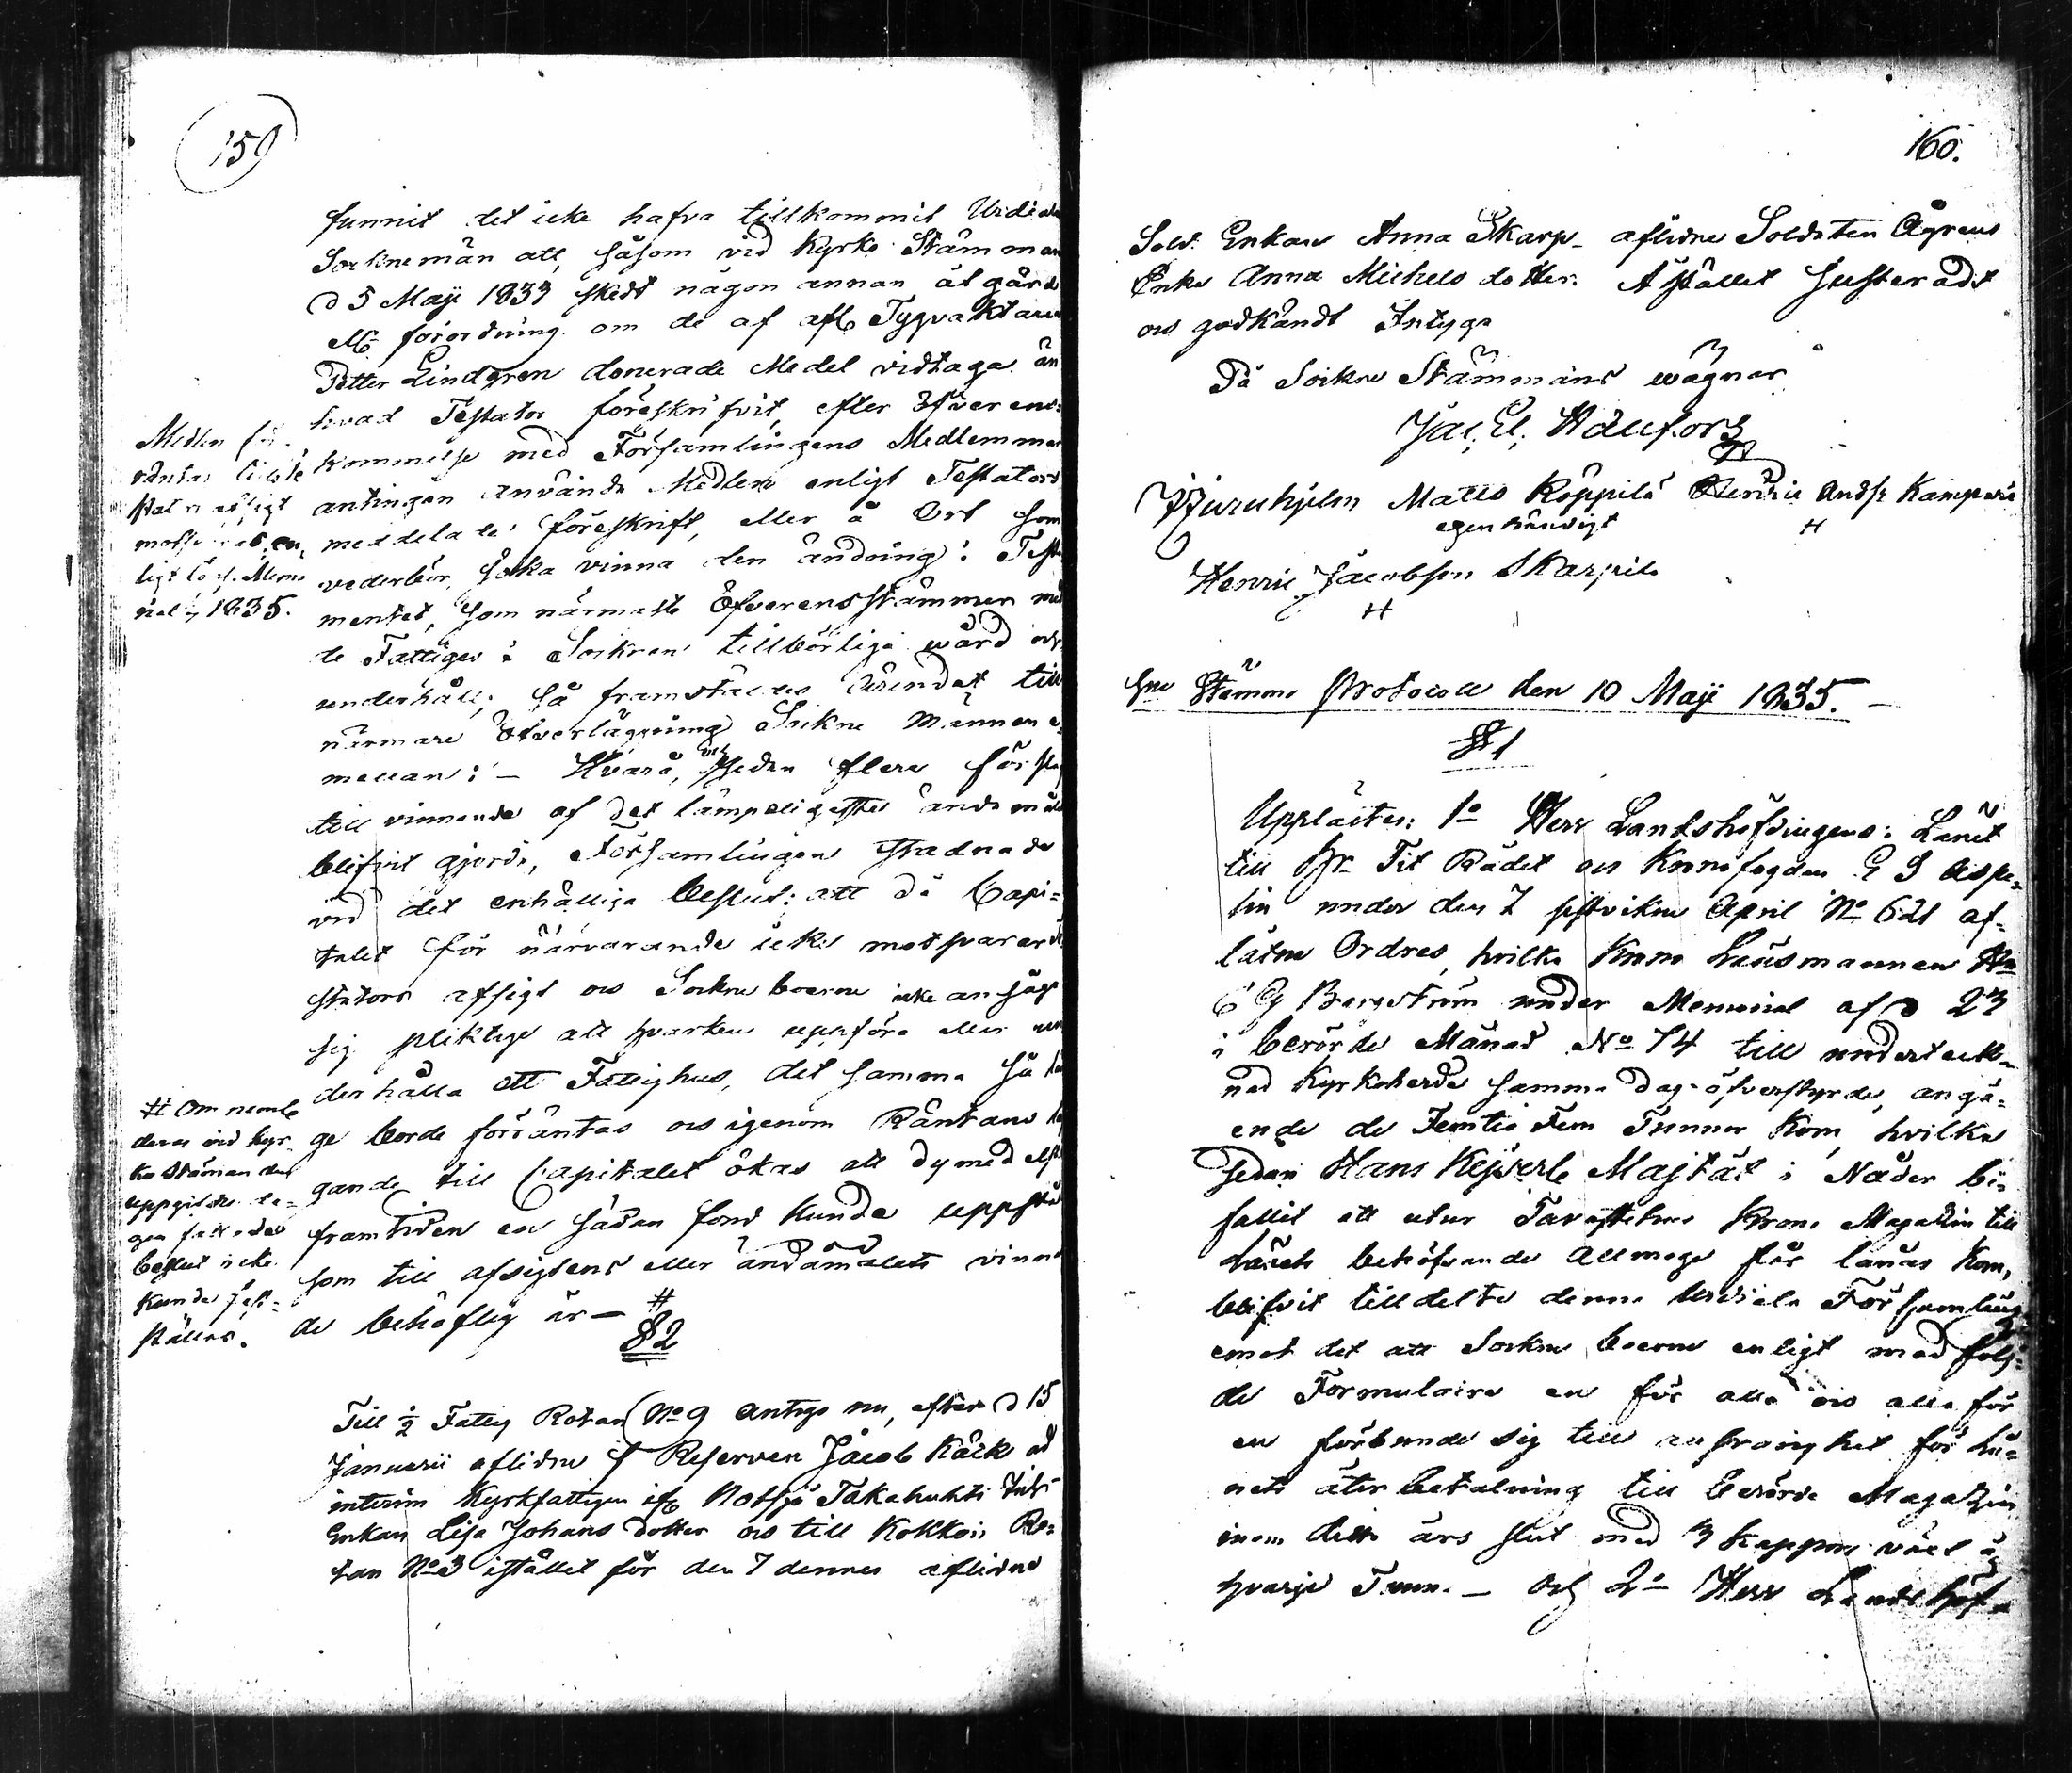 159
funnit det icke hafva tillkommit Urdiala
Sockne män att, såsom vid Kyrko Stämman
d 5 Maji 1834 skedt någon annan åtgärd
förordning om de af afl Tygvaktaren
Petter Lindgren donerade Medel vidtaga än
hvad Testator föreskrifvit, efter öfverens-
kommelse med Församlingens Medlemmar
antingen använda Medlen enligt Testators
meddelade föreskrift, eller å Ort som
vederbör, söka vinna den ändring i Testa
mentet, som närmaste öfverensstämmer med
de Fattiges i Socknen tillbörliga wård och
underhåll; så framstäldes ärendet till
närmare öfverläggning Sockne Männen e-
mellan: — Hvarå, sedan flere förslag
till vinnande af det lämpeligaste ändamål
blifvit gjorde, Församlingen stadnade
vid det enhälliga beslut: att då Capi-
talet för närvarande icke motsvarar Te
stators afsigt och Sockne boerne icke ansågo
sig pliktige att hvarken uppföra eller un
derhålla ett Fattighus, det samma så län
ge borde förräntas och igenom Räntans läg
gande till Capitalet ökas att dymedelst
framtiden en sådan fond kunde uppstå
som till afsigtens eller ändamålets vinnan
de behöflig är — #
Medlen för-
räntas
enligt
en-
ligt Memo
rial 1835.
# Om nemli
derne vid kyr-
ko Stäman den
uppgifne da-
gen fattades
beslut icke
kunde fast-
ställas.
§ 2
Till ½ Fattig Rotan No 9 antogs nu, efter d 15
Januarii aflidne Reserven Jacob Käck ad
interim Kyrkfattigen if Notsjö Takahuhti Inh
Enkan Lisa Johans dotter och till Kokkois Ro-
tan No 3 istället för den 7 dennes aflidne
160.
Sold. Enkan Anna Skarp aflidne Soldaten Ågrens
Enka Anna Michels dotter. Å stället justeradt
och godkändt Intyga
På Sockne Stämmans wägnar
Jac. El. Wallfors
Furuhjelm Matts Röppilä Henric Andss Kamparis
egenhändigt
Henric Jacobsson Skarpila
Sne Stämmo Protocoll den 10 Maji 1835.
§ 1
Upplästes: 1o Herr Landshöfdingens i Länet
till Hr Tit Rådet och Kronofogden E J Aspe-
lin under den 7 sistvikne April No 621 af-
låtne Ordres, hvilka Krono Länsmannen Hr
C G Bergström under Memorial af d 23
i berörde Månad No 74 till underteck-
nad Kyrkoherde samma dag öfverstyrde, angå-
ende de Femtio Fem Tunnor Korn, hvilka
sedan Hans Kejserle Majtät i Nåder bi-
fallit att utur Tavastehus Krono Magazin till
Länets behöfvande Allmoge får lånas Korn,
blifvit tilldelte denne Urdiala Församling
emot det att Sockne boerne enligt medfölj-
de Formulaire en för alla och alla för
en förbunde sig till ansvarighet för lå-
nets återbetalning till berörde Magazin
inom detta års slut med 3 kappors växt å
hvarje Tunna — Och 2o Herr Landshöf-